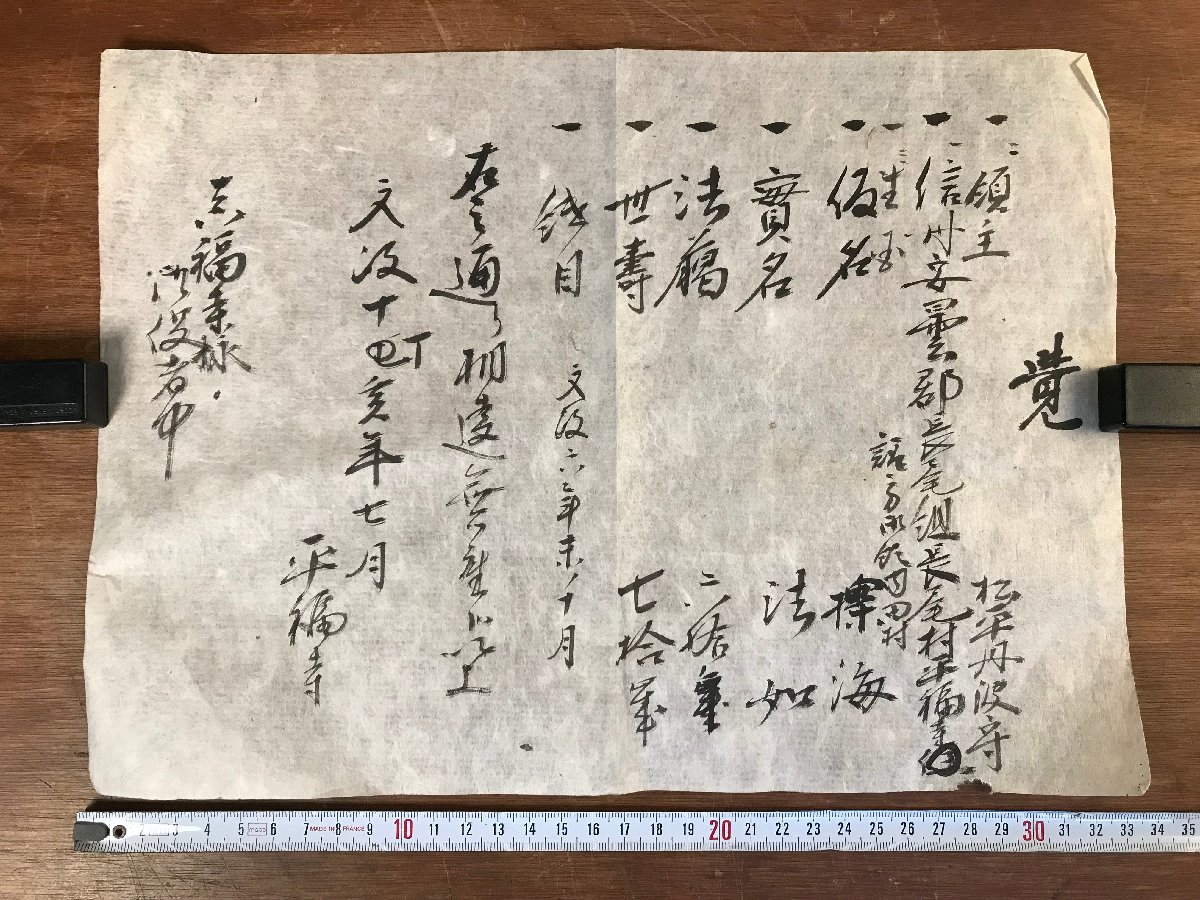 覚
一 領主 松平丹波守
一 信州安曇郡長尾組長尾村平福寺
一 生国
一 仮名 海
一 實名 法如
一 法﨟 二拾年
一 世壽 七拾歳
一 継目 文政六年未十月
右之通り相違無御座候以上
文政十丁亥年七月
平福寺
真福寺様
御役者中
MADE IN FRANCE
2 3 4 5 6 7 8 9 10 11 12 13 14 15 16 17 18 19 20 21 22 23 24 25 26 27 28 29 30 31 32 33 34 35